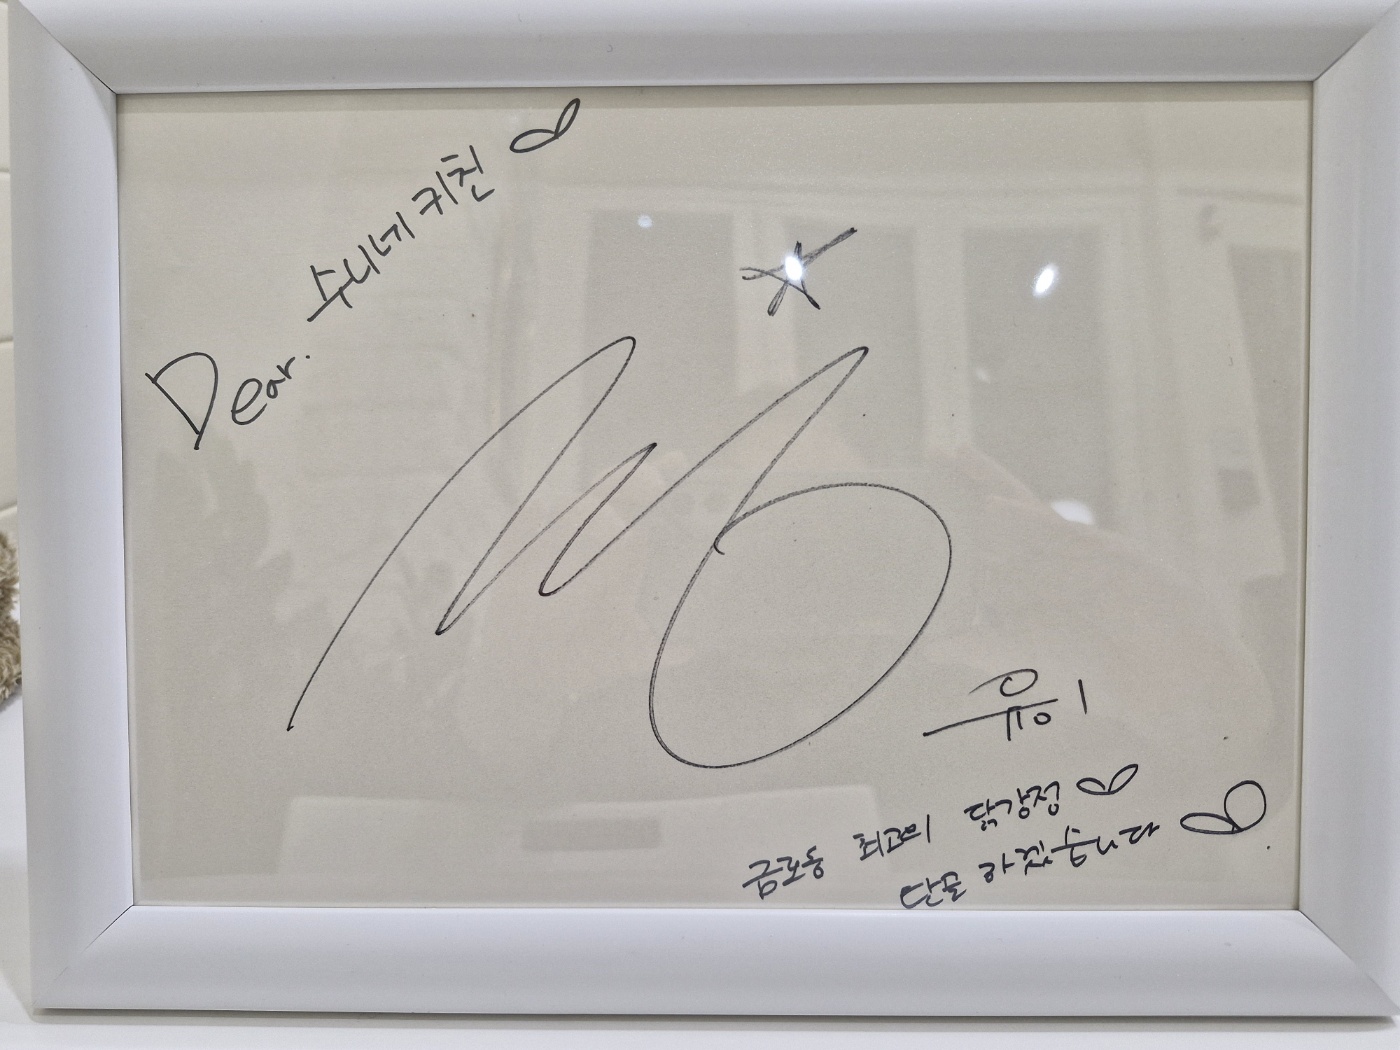 Dear. 수니네 키친
유이
금호동 최고의 닭강정
단골 하겠습니다